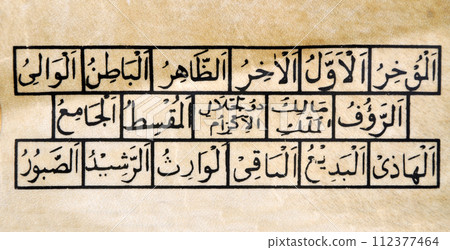 اَلْمُؤَخِرُ اَلْاَوَّلُ اَلْاٰخِرُ اَلظَّاهِرُ اَلْبَاطِنُ اَلْوَالِىُ
اَلرَّؤُفُ مَالِكَ المُلْكِ ذُو الْجَلَالِ الْاِكْرَامِ اَلْمُقْسِطُ اَلْجَامِعُ
اَلْهَادِىُ اَلْبَدِيْعُ اَلْبَاقِىُ اَلْوَارِثُ اَلرَّشِيْدُ اَلصَّبُوْرُ
112377464